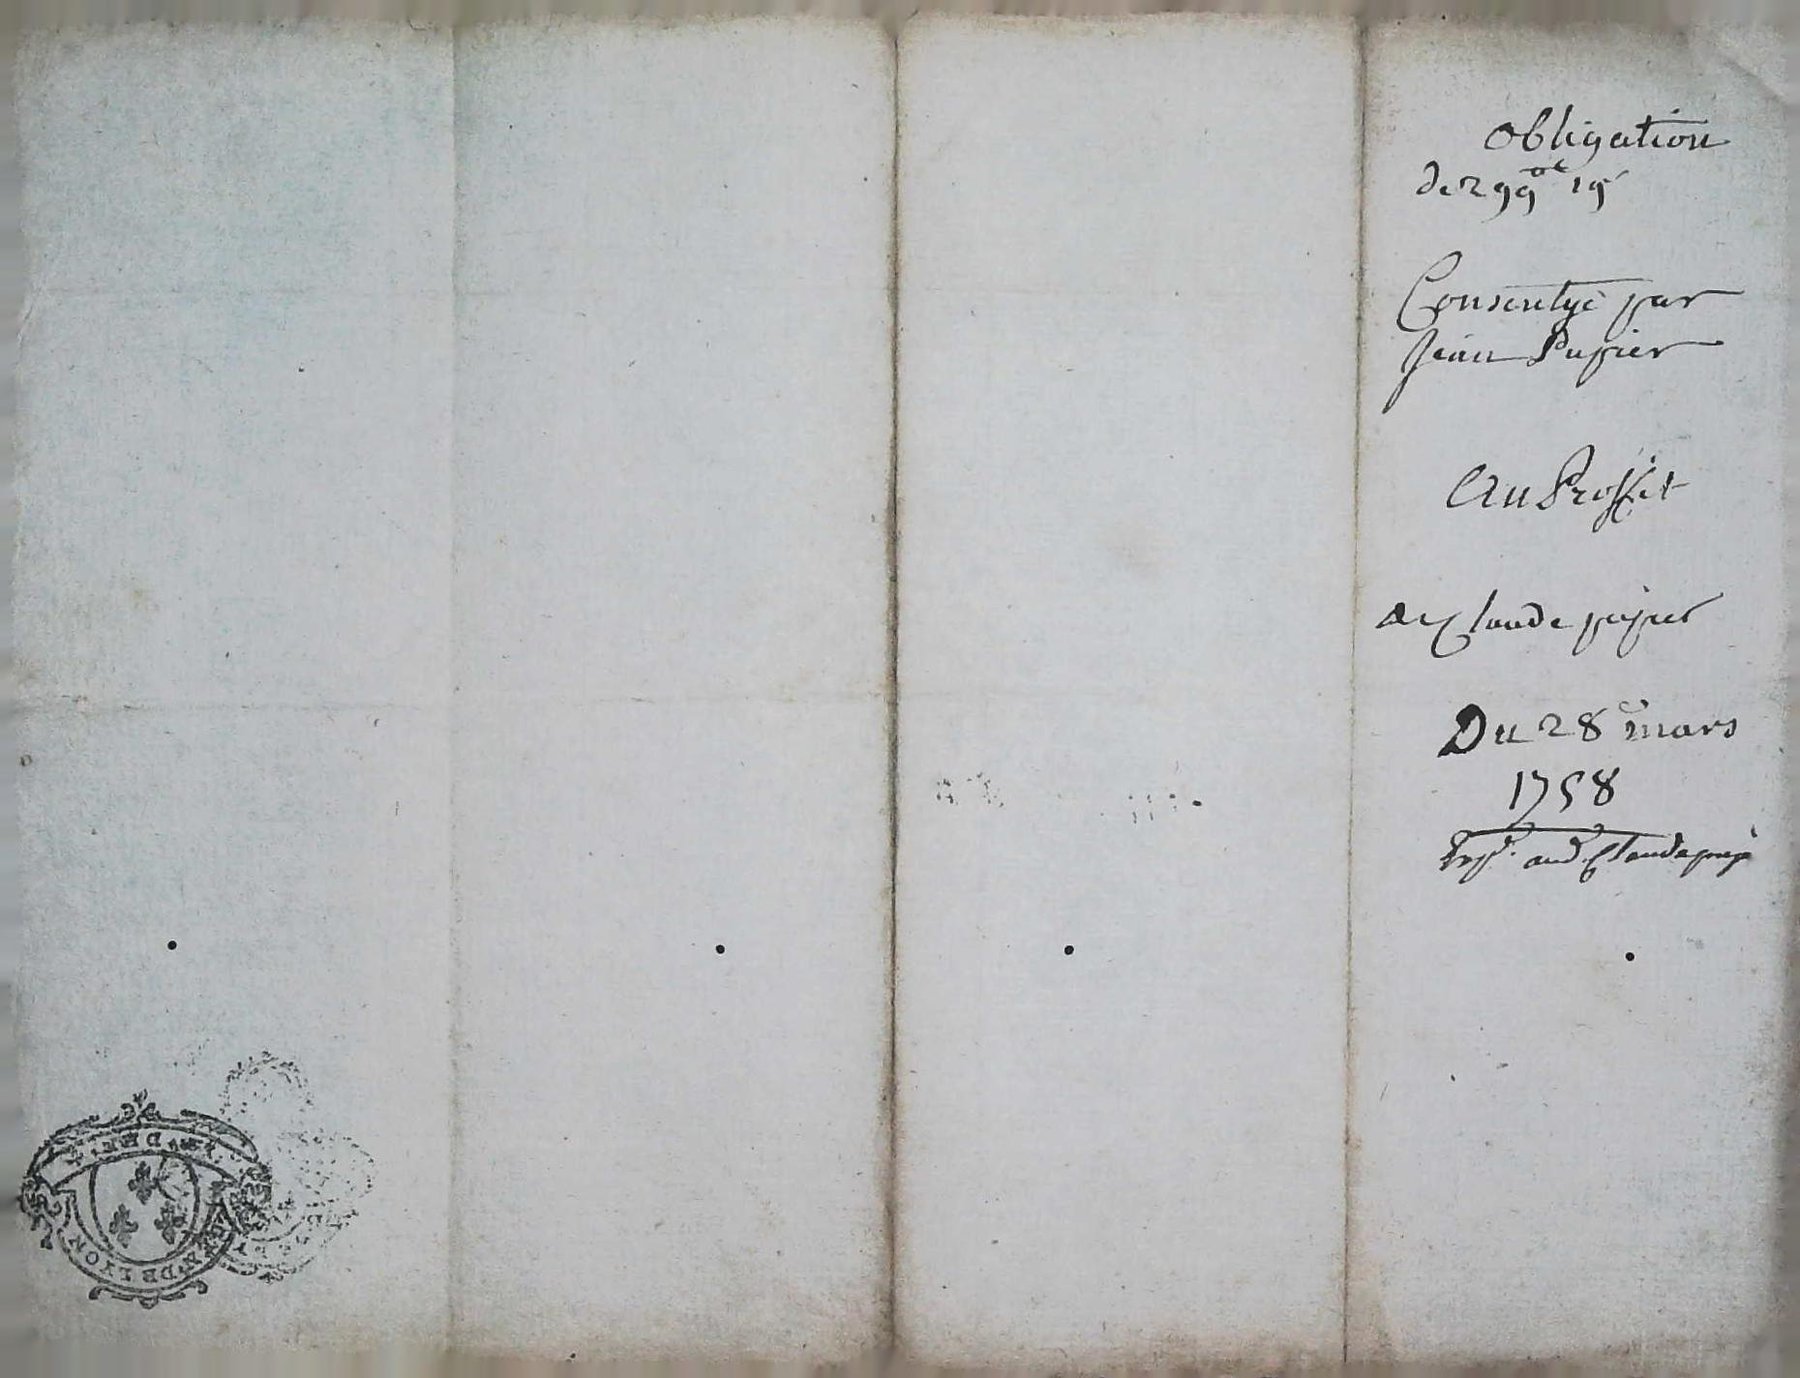 obligation
de 299 lt 19 s
Consentye par
Jean Pupier
Au Proffit
de Claude pupier
Du 28 mars
1758
Exp. aud. Claude pup.
GEN. DE LYON